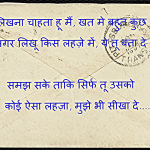 लिखना चाहता हू मैं, खत मे बहुत कुछ
अगर लिखू किस लहज़े में, ये तू बता दे
समझ सके ताकि सिर्फ तू उसको
कोई ऐसा लहज़ा, मुझे भी सीखा दे....